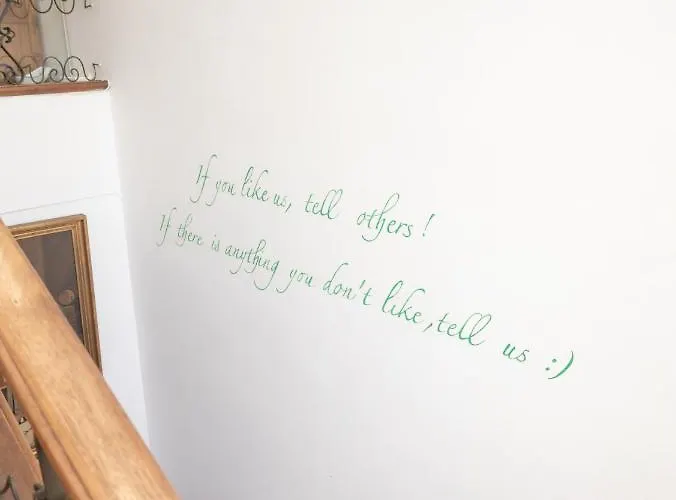 If you like us, tell others!
If there is anything you don't like, tell us :)